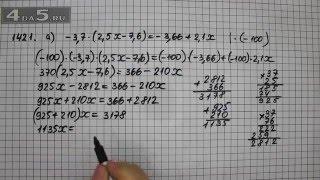 4DS.RU
1421. а) -3,7·(2,5x-7,6)=-3,66+2,1x |·(-100)
(-100)·(-3,7)·(2,5x-7,6)=(-100)·(-3,66)+(-100)·2,1x
370(2,5x-7,6)=366-210x
925x-2812=366-210x
925x+210x=366+2812
(925+210)x=3178
1135x=
+2812
366
3178
×37
25
185
74
925
+925
210
1135
×37
76
222
259
2812